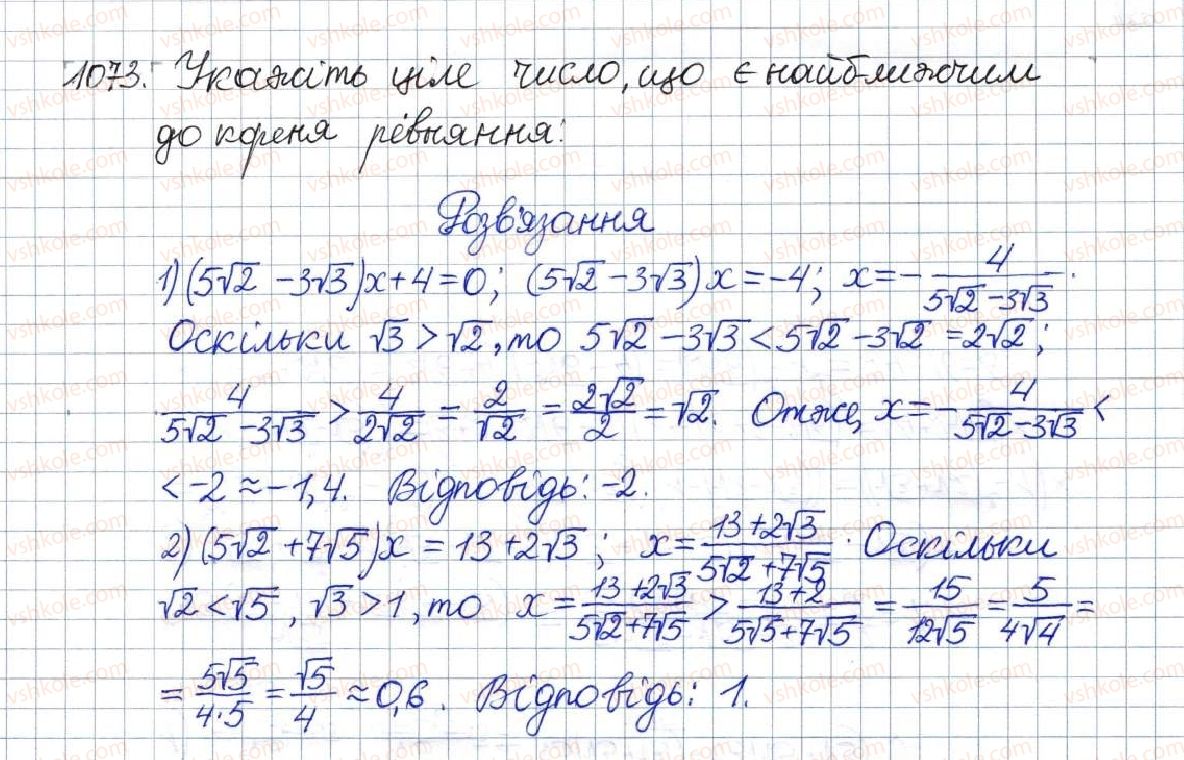 1073. Укажіть ціле число, що є найближчим
до кореня рівняння:
Розв'язання
1) (5√2 - 3√3)x + 4 = 0; (5√2 - 3√3)x = -4; x = - 4/(5√2 - 3√3).
Оскільки √3 > √2, то 5√2 - 3√3 < 5√2 - 3√2 = 2√2;
4/(5√2 - 3√3) > 4/(2√2) = 2/√2 = 2√2/2 = √2. Отже, x = - 4/(5√2 - 3√3) <
< -2 ≈ -1,4. Відповідь: -2.
2) (5√2 + 7√5)x = 13 + 2√3; x = (13 + 2√3)/(5√2 + 7√5). Оскільки
√2 < √5, √3 > 1, то x = (13 + 2√3)/(5√2 + 7√5) > (13 + 2)/(5√5 + 7√5) = 15/(12√5) = 5/(4√4) =
= 5√5/(4·5) = √5/4 ≈ 0,6. Відповідь: 1.